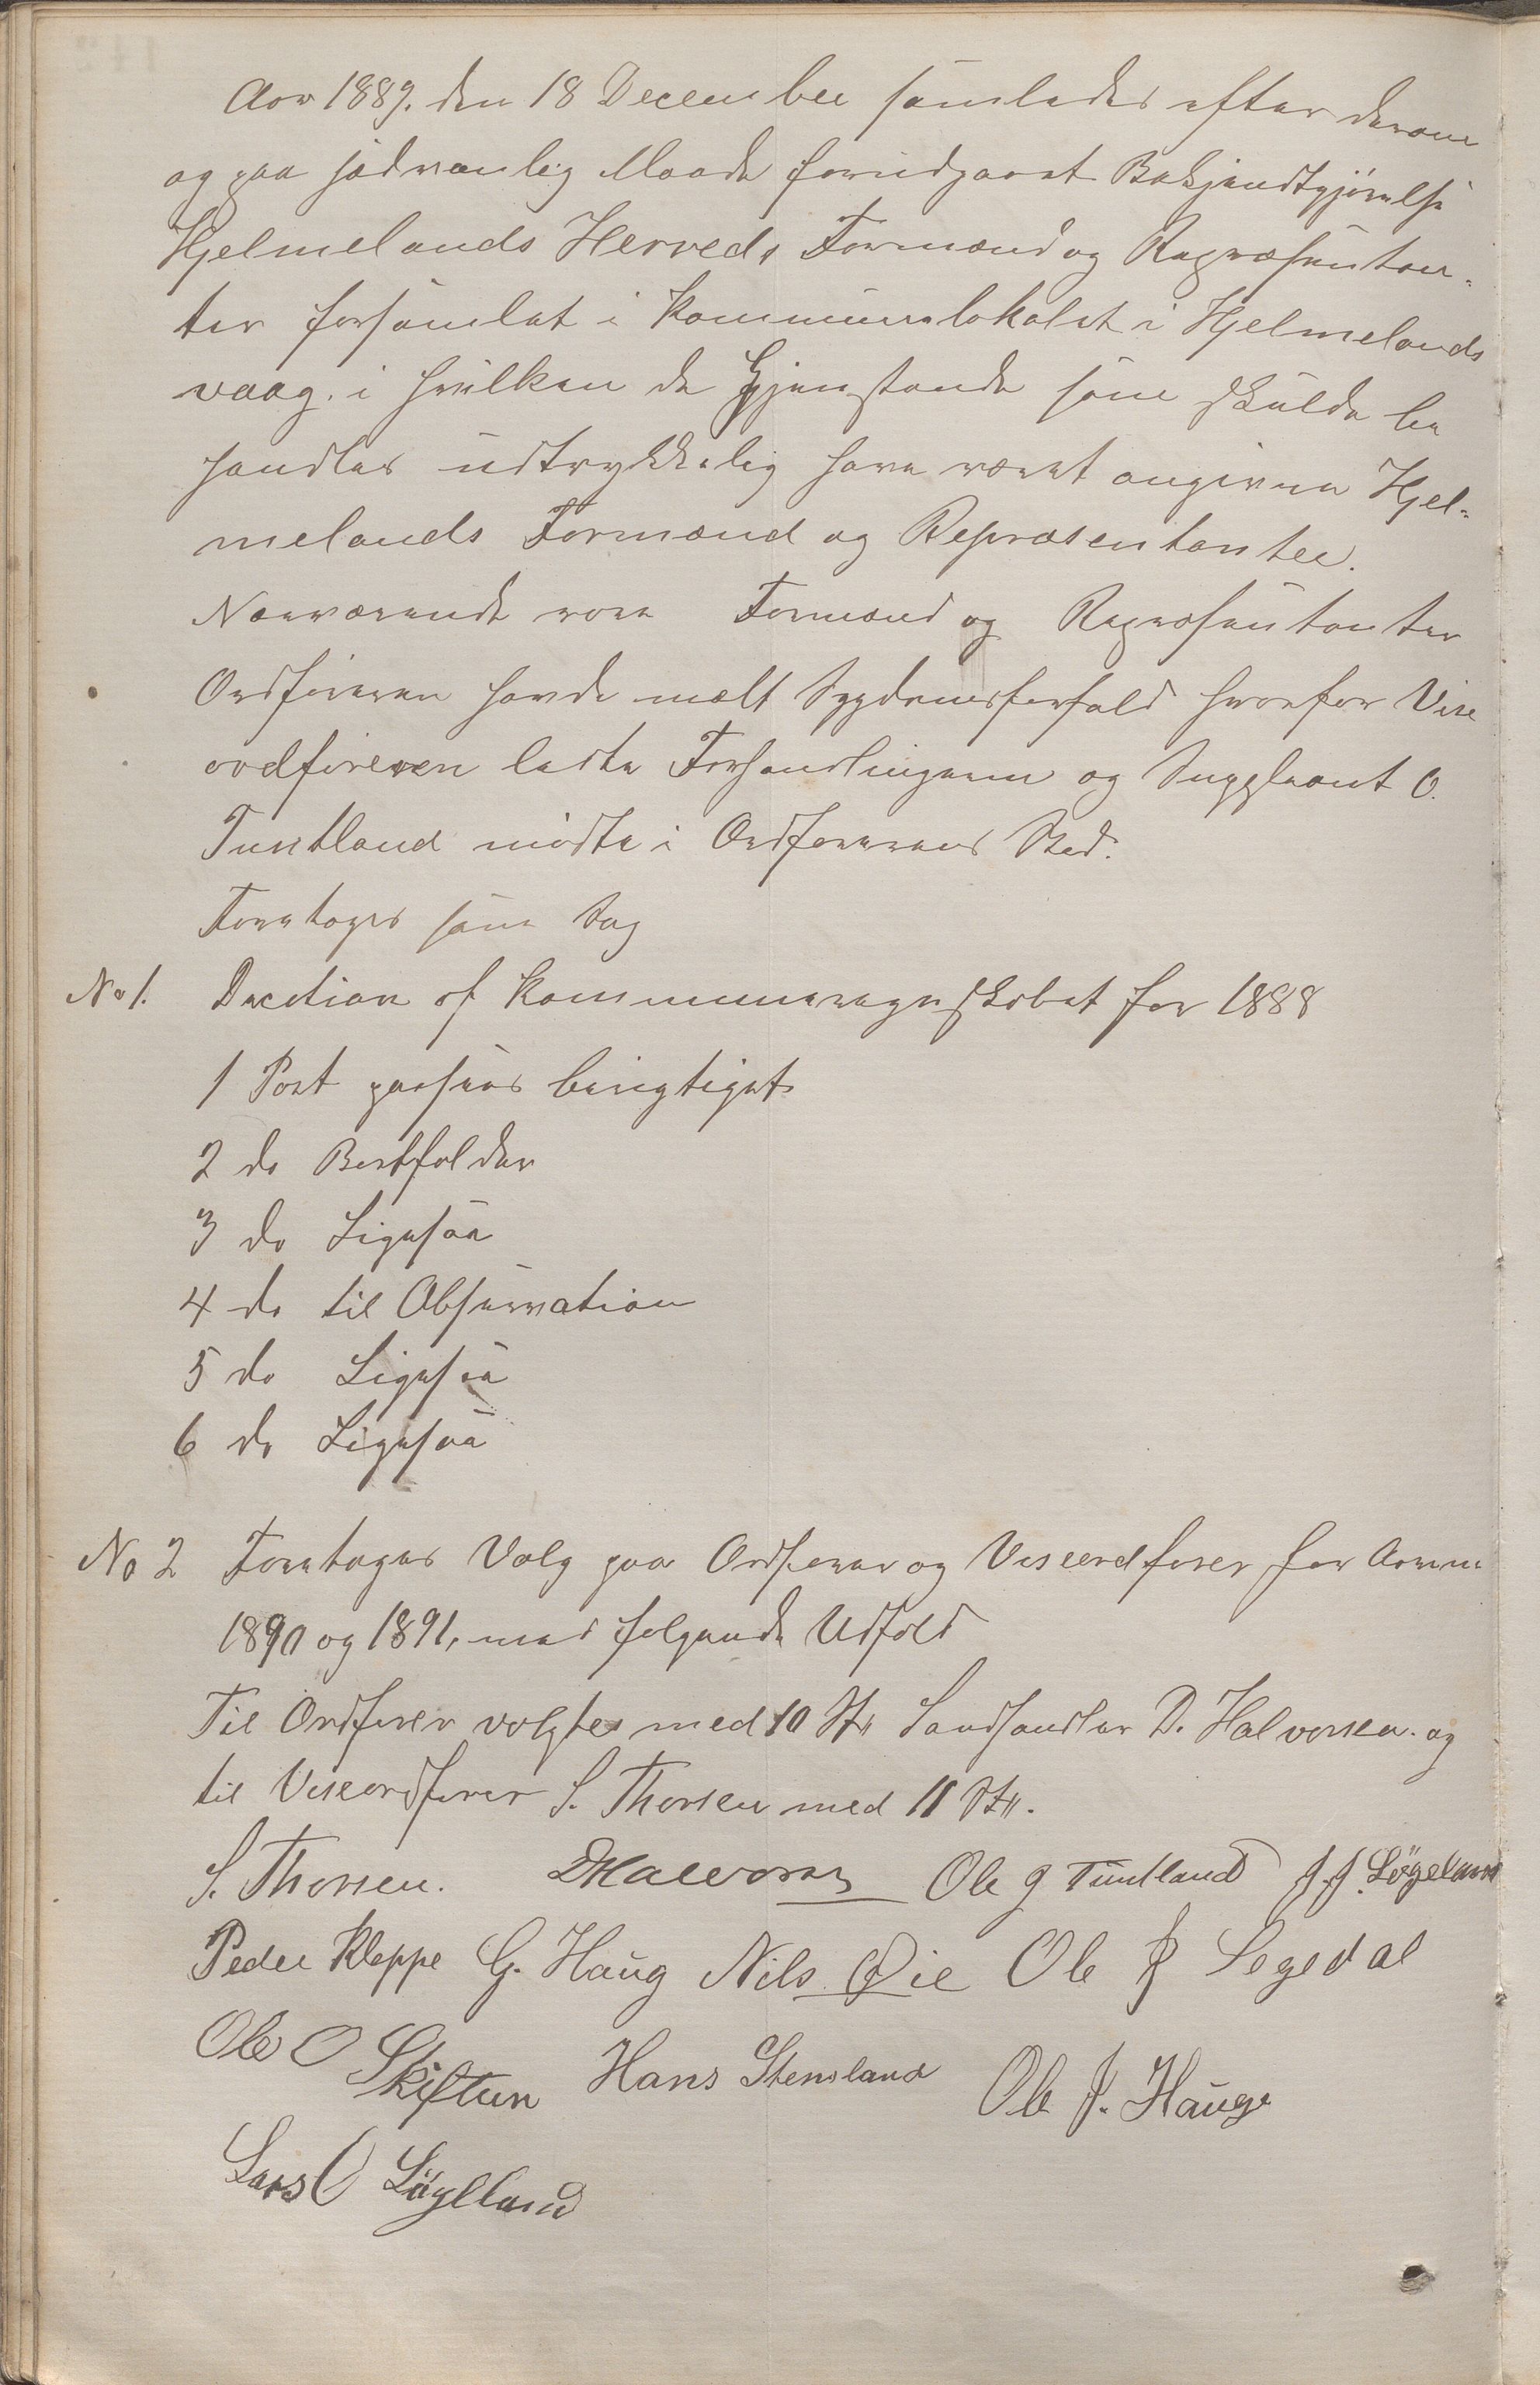 Aar 1889. den 18 December samledes efter derom
og paa sædvanlig Maade forudgaaet Bekjendtgjørelse
Hjelmelands Herreds Formænd og Repræsentan-
ter forsamlet i Kommunelokalet i Hjelmelands
vaag. i hvilken de Gjenstande som skulde be
handles udtrykkelig have været angivne Hjel-
melands Formænd og Repræsentanter.
Nærværende vare Formænd og Repræsentanter
Ordføreren havde mælt Sygdomsforfald hvorfor Vise
ordføreren ledte Forhandlingerne og Suppleant O.
Tuntland mødte i Ordførerens Sted.
Foretoges som Sag
No 1. Decition af Kommuneregnskabet for 1888
1 Post passeres berigtiget
2 do Bortfalder
3 do Ligesaa
4 do til Observation
5 do Ligesaa
6 do Ligesaa
No 2 Foretoges Valg paa Ordfører og Viseordfører for Aarene
1890 og 1891, med følgende Udfald
Til Ordfører valgtes med 10 St. Landhandler D. Halvorsen. og
til Viseordfører S. Thorsen med 11 St.
S. Thorsen. DHalvorsen Ole G Tuntland J. J. Løgeland
Peder Kleppe G. Haug Nils Øie Ole J Segedal
Ole O Skiftun Hans Stensland Ole J. Hauge
Lars O Løylland